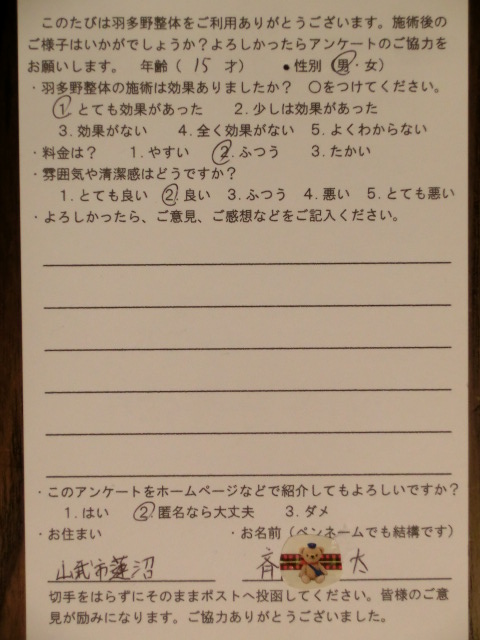 このたびは羽多野整体をご利用ありがとうございます。施術後の
ご様子はいかがでしょうか？よろしかったらアンケートのご協力を
お願いします。 年齢（ 15 才） ・性別（男・女）
・羽多野整体の施術は効果ありましたか？ ○をつけてください。
1. とても効果があった 2. 少しは効果があった
3. 効果がない 4. 全く効果がない 5. よくわからない
・料金は？ 1. やすい 2. ふつう 3. たかい
・雰囲気や清潔感はどうですか？
1. とても良い 2. 良い 3. ふつう 4. 悪い 5. とても悪い
・よろしかったら、ご意見、ご感想などをご記入ください。
・このアンケートをホームページなどで紹介してもよろしいですか？
1. はい 2. 匿名なら大丈夫 3. ダメ
・お住まい ・お名前（ペンネームでも結構です）
山武市蓮沼 斉 大
切手をはらずにそのままポストへ投函してください。皆様のご意
見が励みになります。ご協力ありがとうございました。